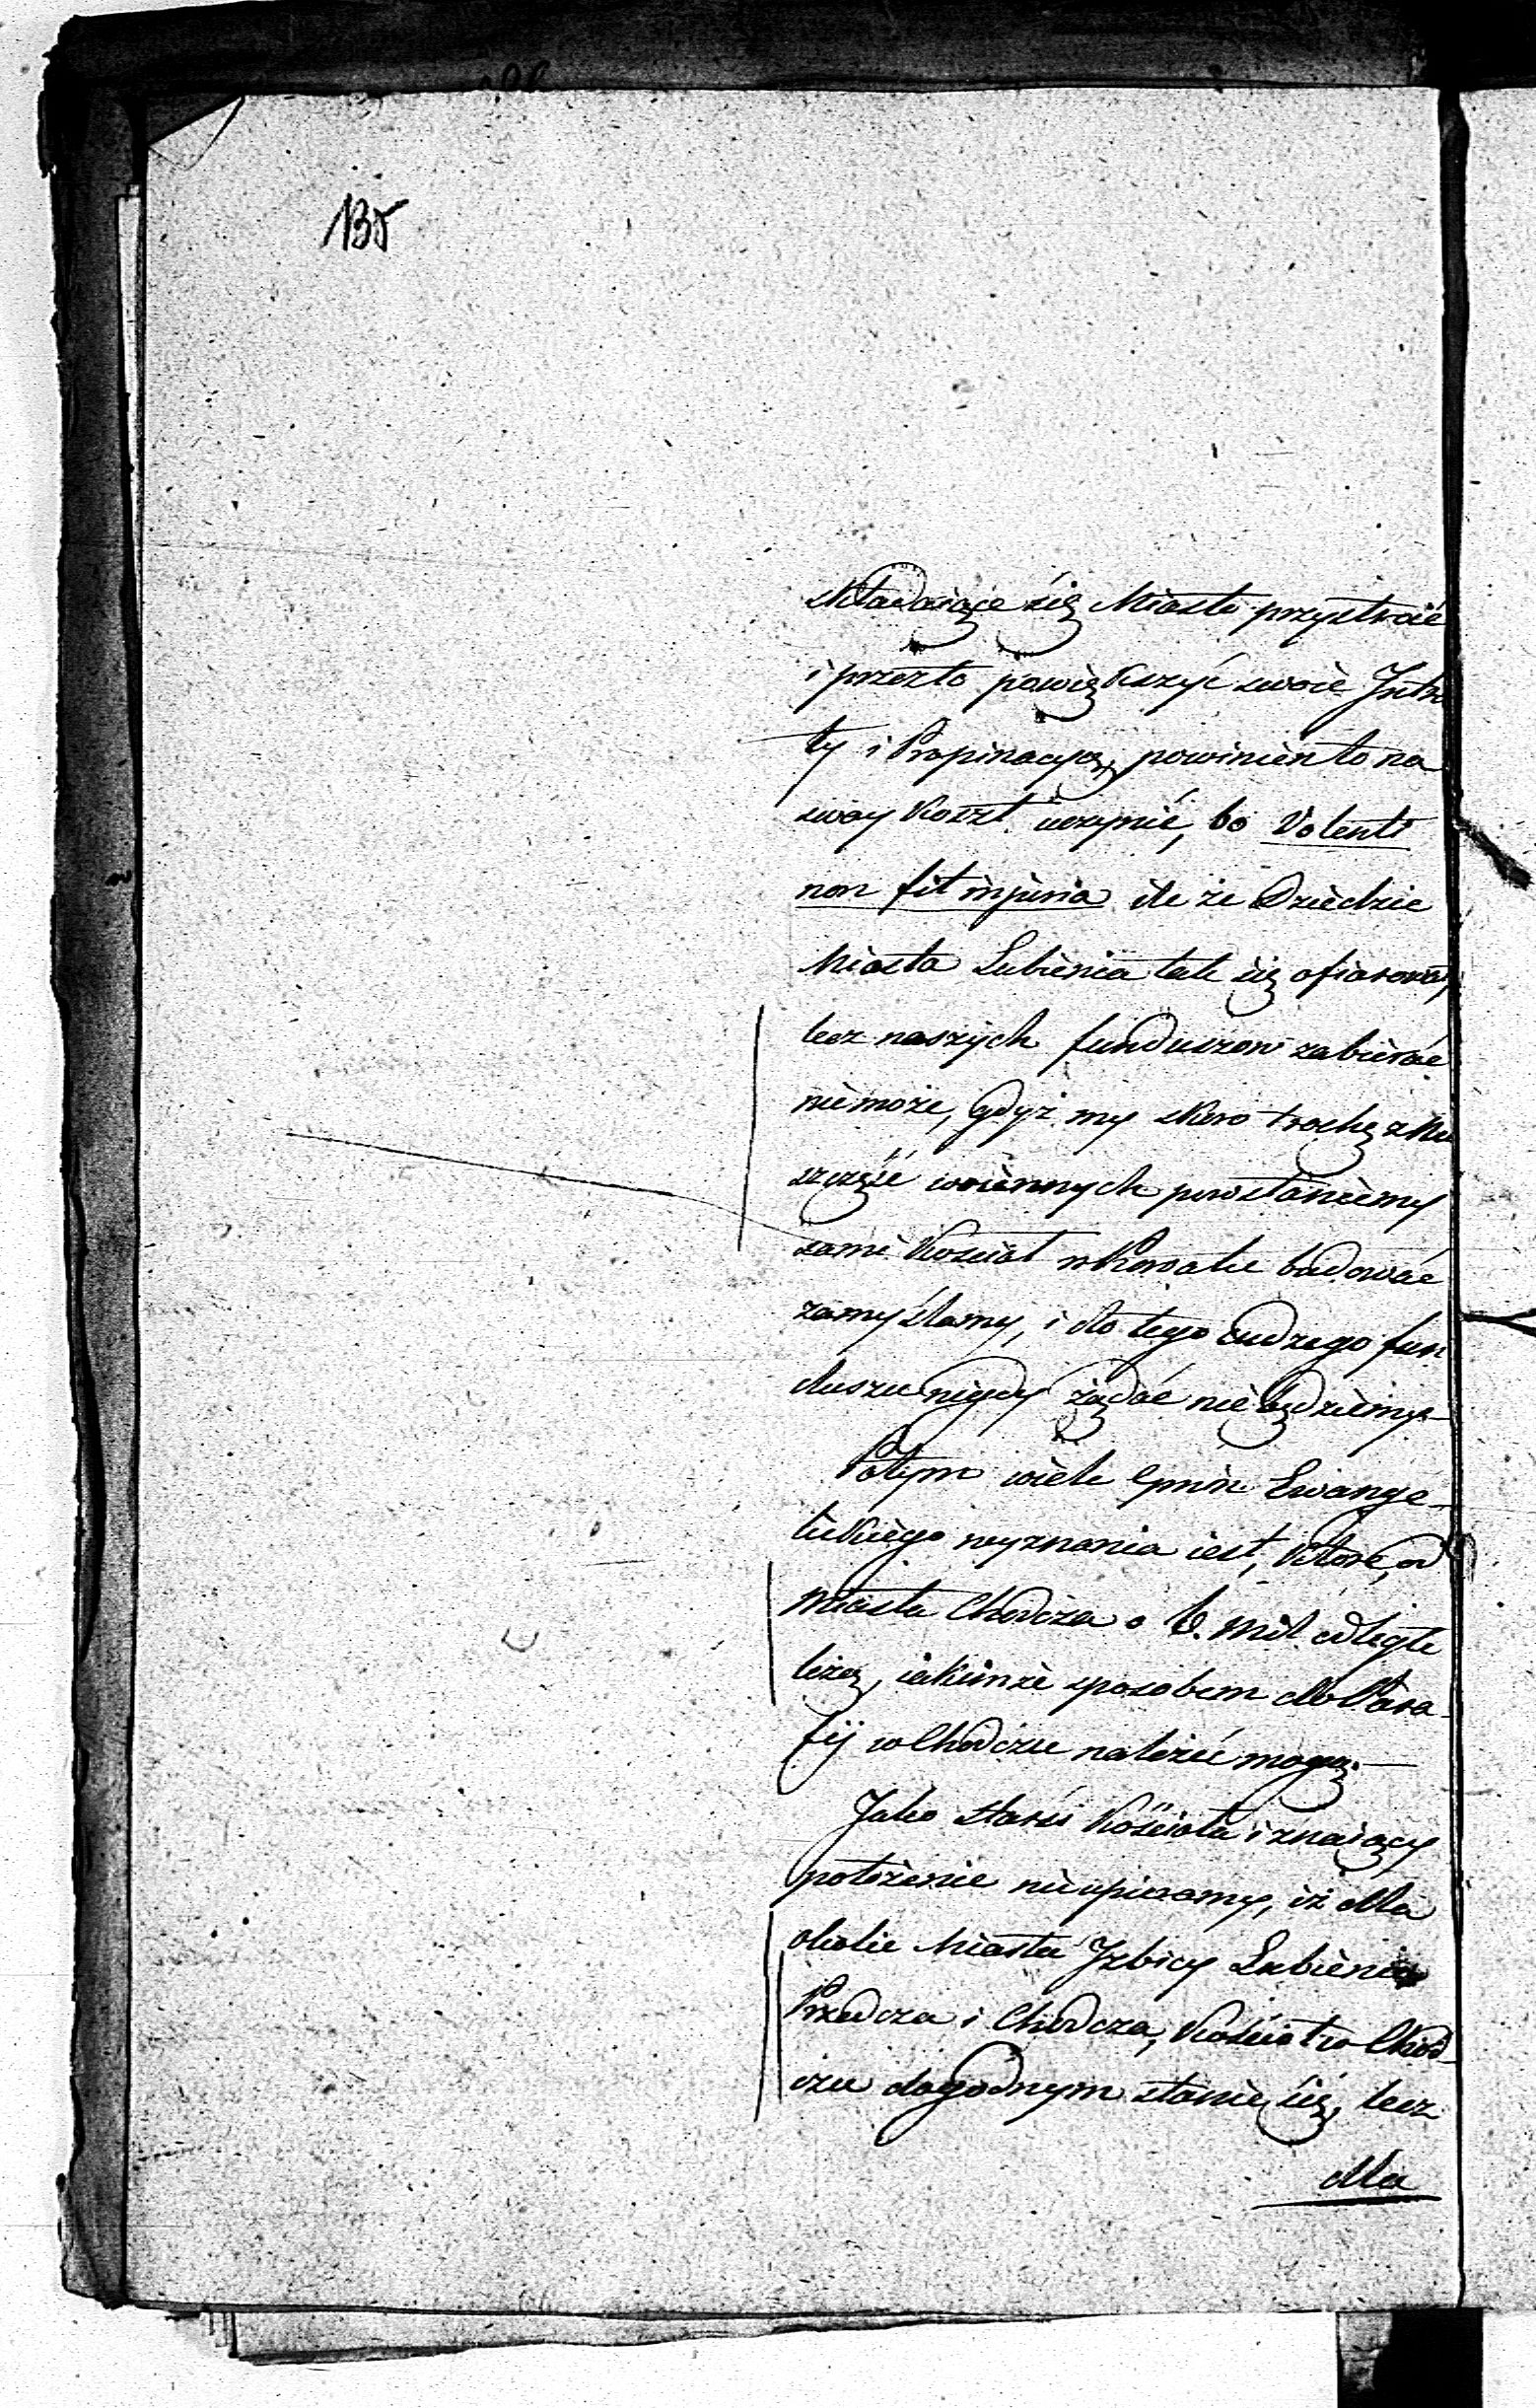 135
składaiące się Miasto przystroić
i przezto powiększyć swoie Intra
ty i Propinacyą, powinien to na
swoy koszt uczynić, bo Volenti
non fit injuria ile że Dziedzic
Miasta Lubienia tak się ofiarował,
lecz naszych funduszow zabierać
niemoże, gdyż my skoro trochę z Nie
szczęść woiennych powstaniemy
sami Kościoł w Kowalu budować
zamyślamy, i do tego cudzego fun
duszu nigdy żądać nie będziemy —
Potym wiele Gmin Ewange-
lickiego wyznania iest, które, od
Miasta Chodcza o 6. Mil odległe
leżą, iakimże sposobem do Para-
fij w Chodczu należeć mogą. —
Jako starsi Kościoła i znaiący
położenie nieupieramy, iż dla
okolic Miasta Izbicy Lubienia
Przedcza i Chodcza, Kościoł w Chod-
czu dogodnym stanie się, lecz
dla